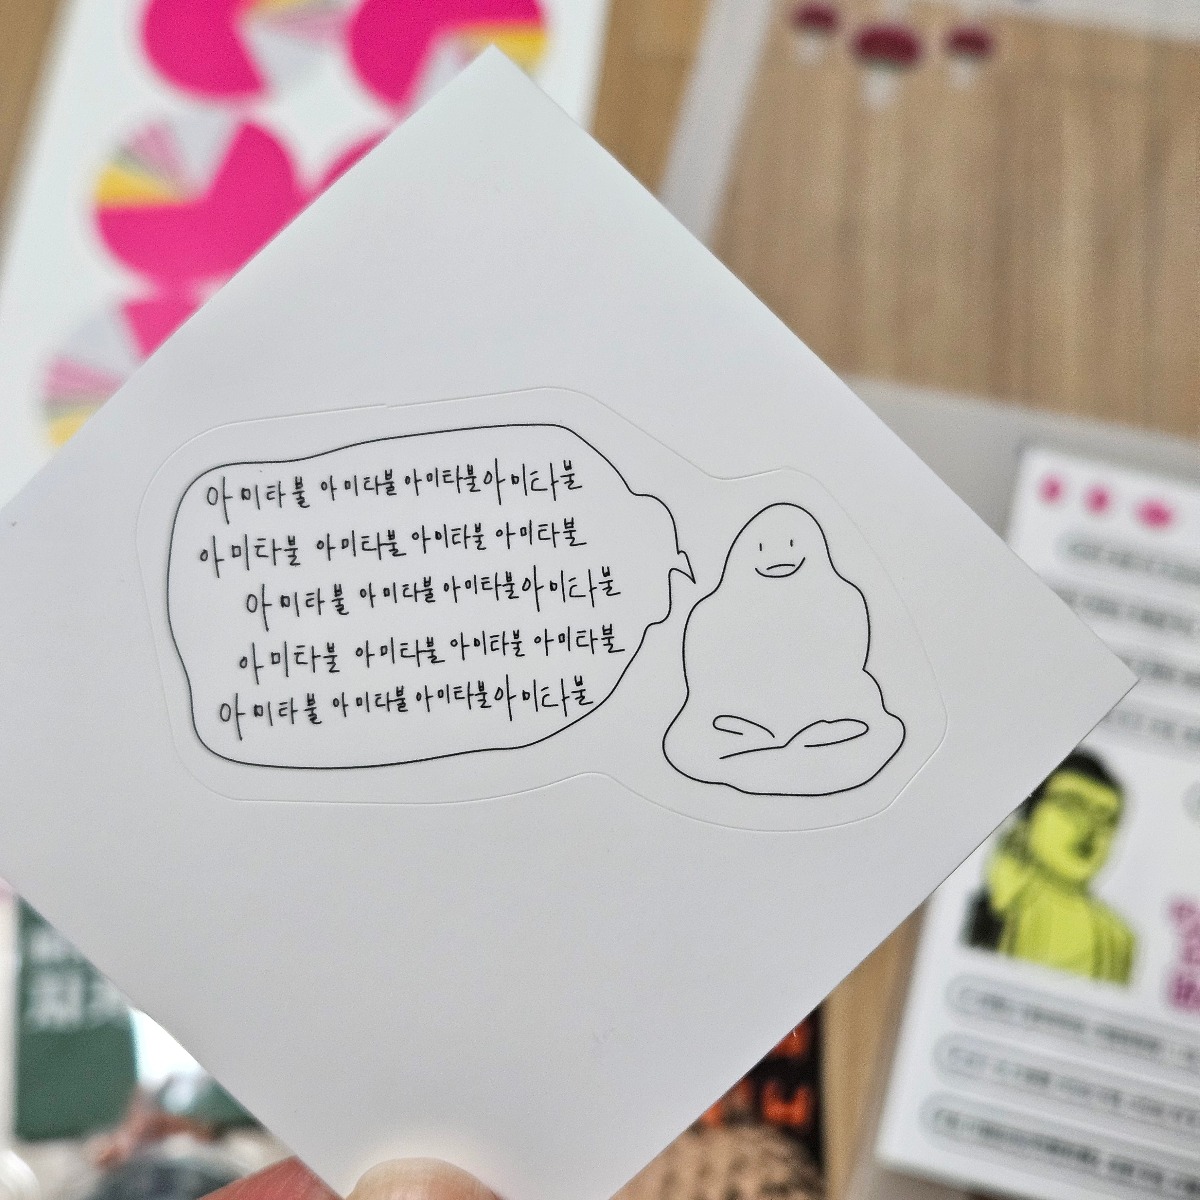 아미타불 아미타불 아미타불 아미타불
아미타불 아미타불 아미타불 아미타불
아미타불 아미타불 아미타불 아미타불
아미타불 아미타불 아미타불 아미타불
아미타불 아미타불 아미타불 아미타불